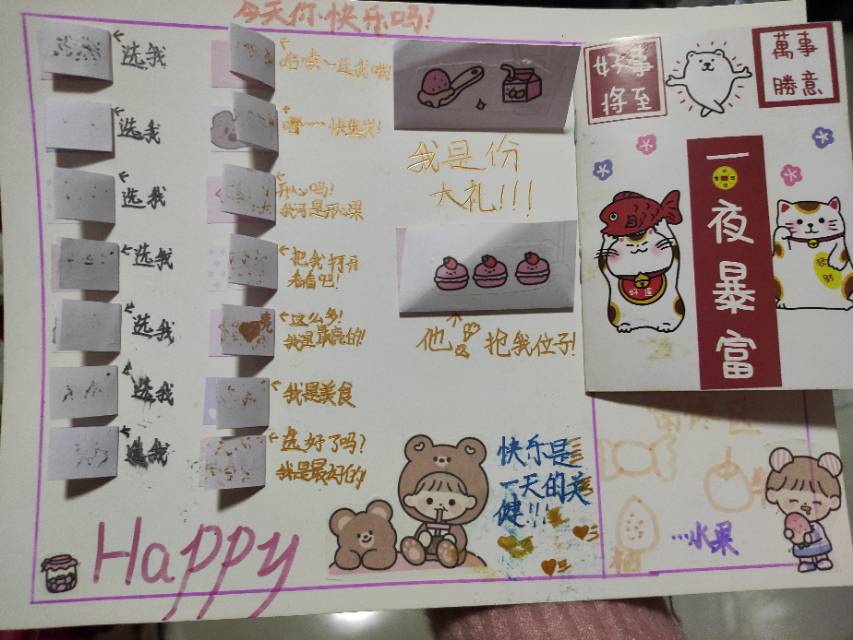 今天你快乐吗!
选我
选我
选我
选我
选我
选我
选我
选我哦
嘿~~快选我!
开心吗!
我可是开心果
把我打开
看看吧!
这么多!
我是最亮的!
我是美食
选好了吗?
我是最好的
我是份
大礼!!!
他 抢我位子!
好事
将至
萬事
勝意
一夜暴富
好運
快乐是
一天的关
健!!!
Happy
...水果